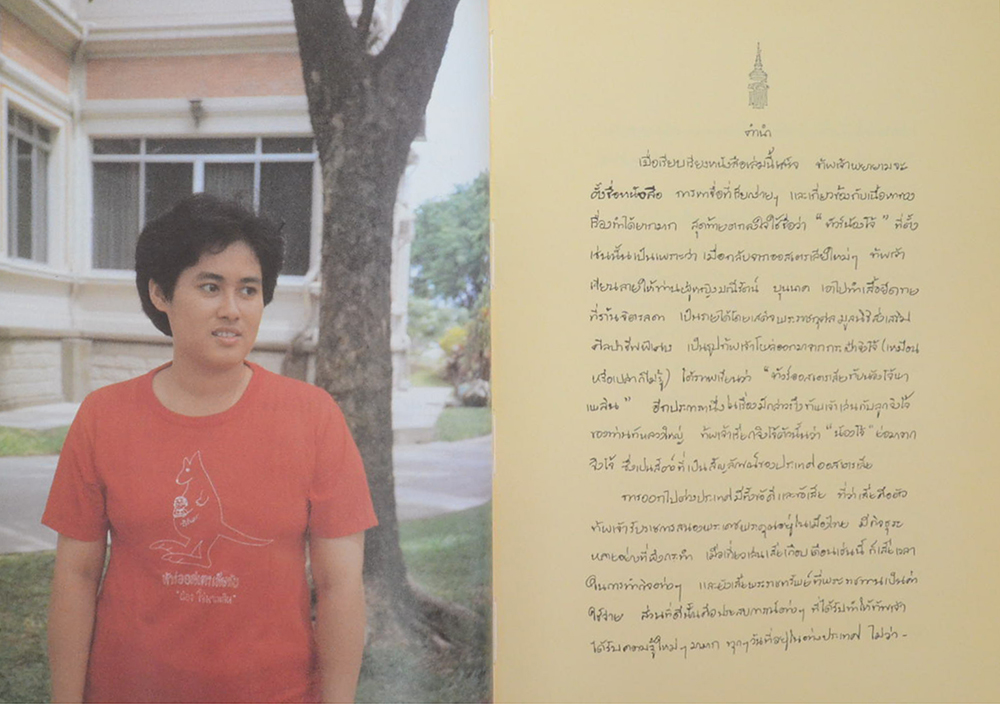 ทัวร์ออสเตรเลียกับ
"น้องโจ้พาเพลิน"
คำนำ
เมื่อเรียบเรียงหนังสือเล่มนี้เสร็จ ข้าพเจ้าพยายามจะ
ตั้งชื่อหนังสือ การหาชื่อที่เรียกง่ายๆ และเกี่ยวข้องกับเนื้อหาของ
เรื่องทำได้ยากมาก สุดท้ายตกลงใจใช้ชื่อว่า "ทัวร์น้องโจ้" ที่ตั้ง
เช่นนั้นเป็นเพราะว่า เมื่อกลับจากออสเตรเลียใหม่ๆ ข้าพเจ้า
เขียนลายให้ท่านผู้หญิงมณีรัตน์ บุนนาค เอาไปทำเสื้อยืดขาย
ที่ร้านจิตรลดา เป็นรายได้โดยเสด็จพระราชกุศลมูลนิธิส่งเสริม
ศิลปาชีพพิเศษ เป็นรูปข้าพเจ้าโผล่ออกมาจากกระเป๋าจิงโจ้ (เหมือน
หรือเปล่าก็ไม่รู้) ใต้ภาพเขียนว่า "ทัวร์ออสเตรเลียกับน้องโจ้พา
เพลิน" อีกประการหนึ่งในเรื่องมีกล่าวถึงข้าพเจ้าเล่นกับลูกจิงโจ้
ของท่านข้าหลวงใหญ่ ข้าพเจ้าเรียกจิงโจ้ตัวนั้นว่า "น้องโจ้" ย่อมาจาก
จิงโจ้ ซึ่งเป็นสัตว์ที่เป็นสัญลักษณ์ของประเทศออสเตรเลีย
การออกไปต่างประเทศมีทั้งข้อดีและข้อเสีย ที่ว่าเสียคือตัว
ข้าพเจ้ารับราชการสนองพระเดชพระคุณอยู่ในเมืองไทย มีกิจธุระ
หลายอย่างที่พึงกระทำ เมื่อเที่ยวเล่นเสียเกือบเดือนเช่นนี้ ก็เสียเวลา
ในการทำกิจต่างๆ และยังเสียพระราชทรัพย์ที่พระราชทานเป็นค่า
ใช้จ่าย ส่วนที่ดีนั้นคือประสบการณ์ต่างๆ ที่ได้รับทำให้ข้าพเจ้า
ได้รับความรู้ใหม่ๆ มาก ทุกๆ วันที่อยู่ในต่างประเทศ ไม่ว่า-